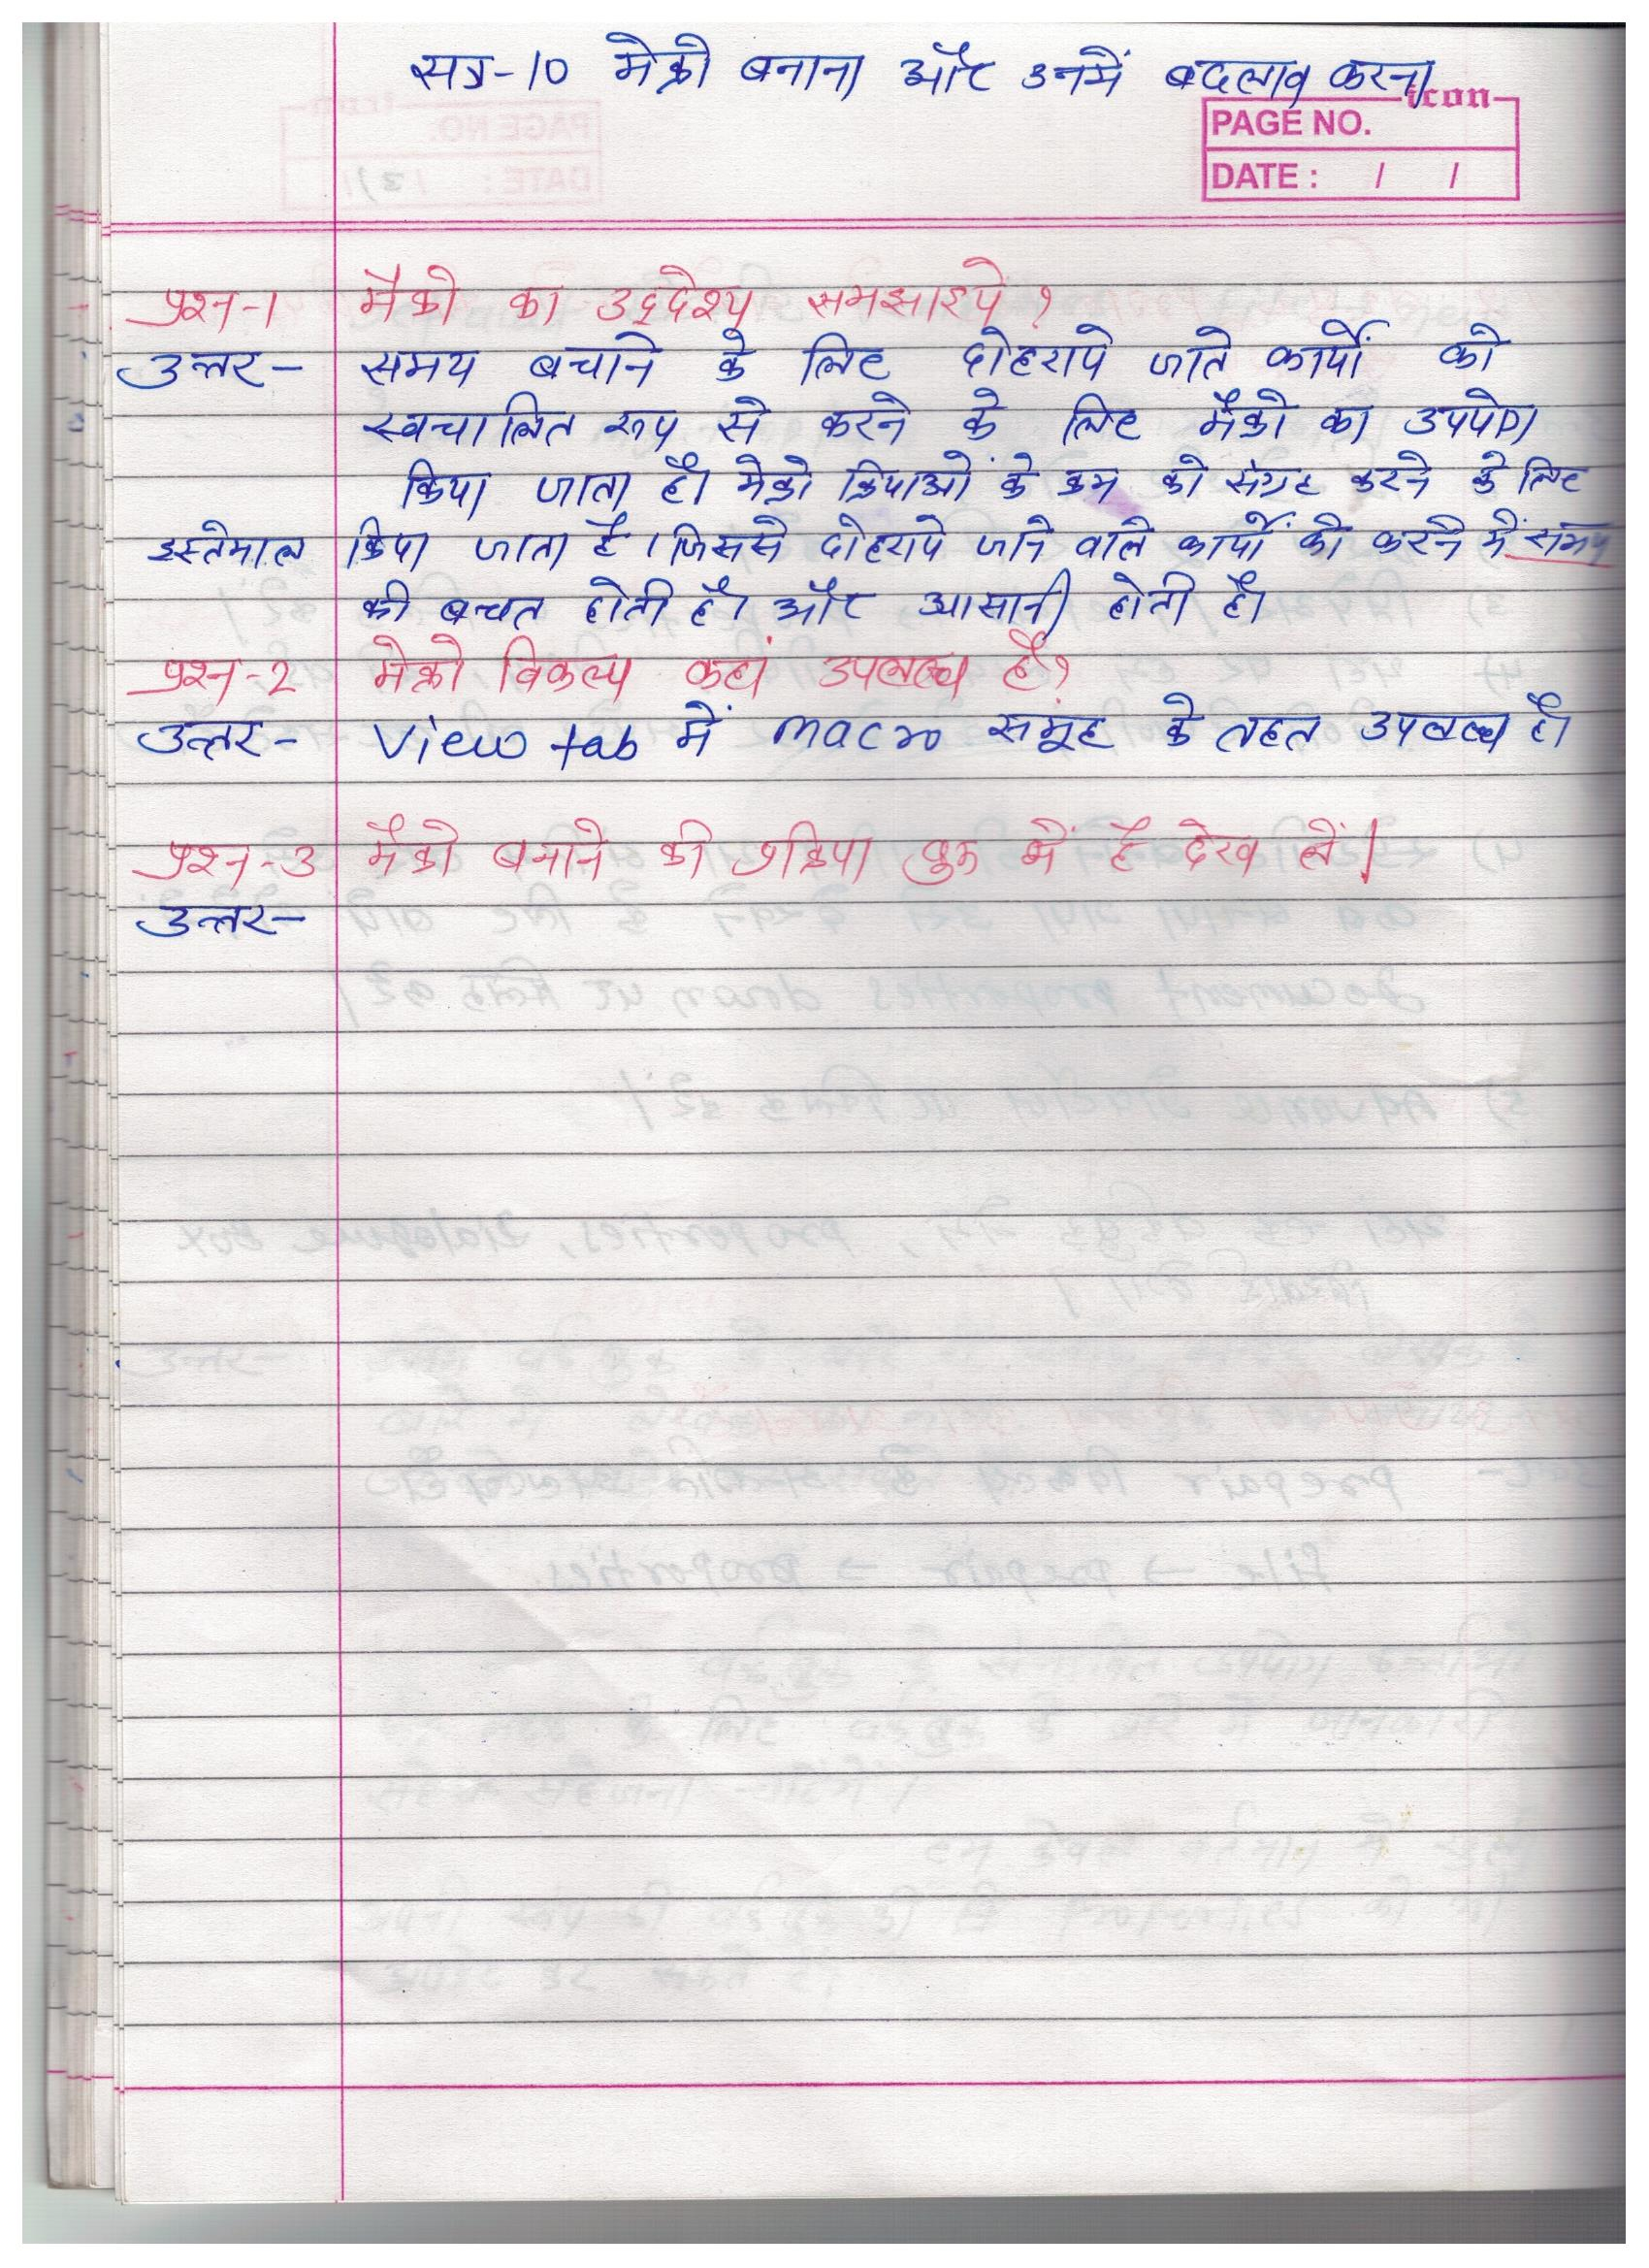 सत्र-10 मेक्रो बनाना और उनमें बदलाव करना
icon
PAGE NO.
DATE : / /
प्रश्न-1 मैक्रो का उद्देश्य समझाइये ?
उत्तर- समय बचाने के लिए दोहराये जाते कार्यो को
स्वचालित रूप से करने के लिए मैक्रो का उपयोग
किया जाता है। मेक्रो क्रियाओं के क्रम को संग्रह करने के लिए
इस्तेमाल किया जाता है। जिससे दोहराये जाने वाले कार्यों को करने में समय
की बचत होती है। और आसानी होती है।
प्रश्न-2 मेक्रो विकल्प कहां उपलब्ध है?
उत्तर- View tab में macro समूह के तहत उपलब्ध है।
प्रश्न-3 मैक्रो बनाने की प्रक्रिया बुक में है देख लें।
उत्तर-